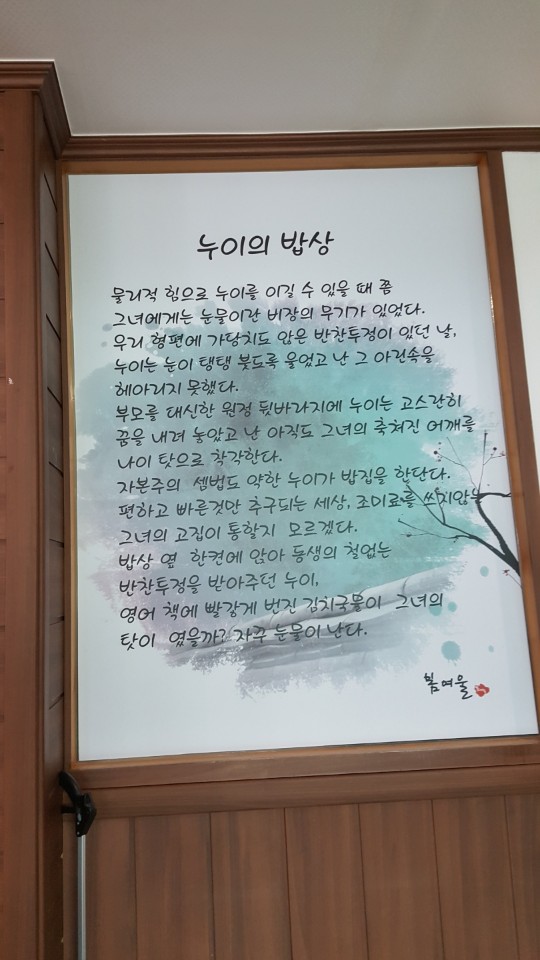 누이의 밥상
물리적 힘으로 누이를 이길 수 있을 때 쯤
그녀에게는 눈물이란 비장의 무기가 있었다.
우리 형편에 가당치도 않은 반찬투정이 있던 날,
누이는 눈이 탱탱 붓도록 울었고 난 그 아린속을
헤아리지 못했다.
부모를 대신한 원정 뒷바라지에 누이는 고스란히
꿈을 내려 놓았고 난 아직도 그녀의 축쳐진 어깨를
나이 탓으로 착각한다.
자본주의 셈법도 약한 누이가 밥집을 한단다.
편하고 빠른것만 추구되는 세상, 조미료를 쓰지않는
그녀의 고집이 통할지 모르겠다.
밥상 옆 한켠에 앉아 동생의 철없는
반찬투정을 받아주던 누이,
영어 책에 빨갛게 번진 김치국물이 그녀의
탓이 였을까? 자꾸 눈물이 난다.
힘여울